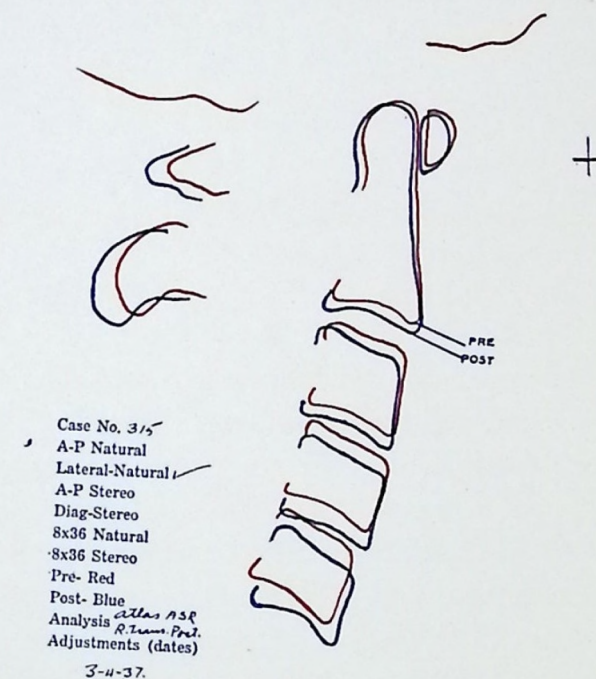 PRE
POST
Case No. 315
A-P Natural
Lateral-Natural
A-P Stereo
Diag-Stereo
8x36 Natural
8x36 Stereo
Pre- Red
Post- Blue
Analysis atlas ASR
R. Trans. Post.
Adjustments (dates)
3-4-37.